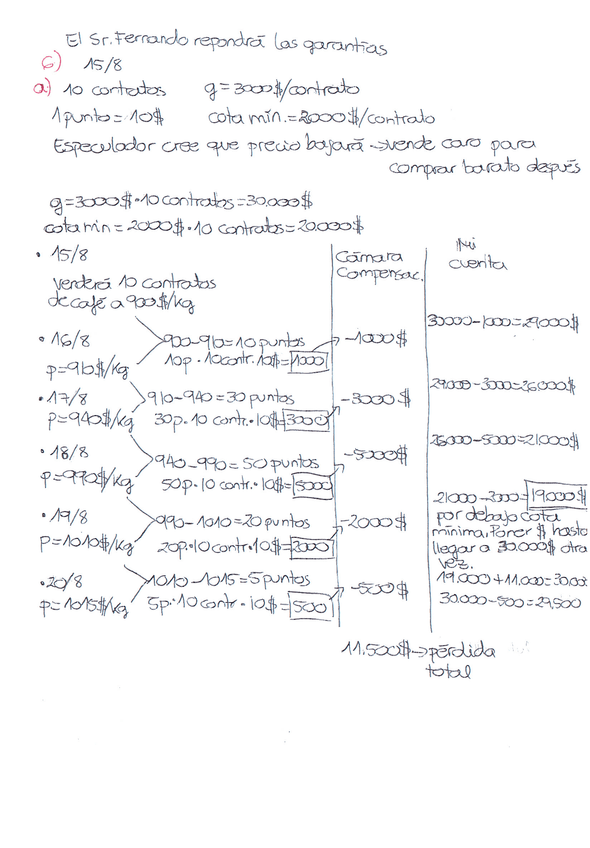 El Sr. Fernando repondrá las garantías
6) 15/8
a) 10 contratos g=3000$/contrato
1 punto=10$ cota mín.=2000$/contrato
Especulador cree que precio bajará → vende caro para
comprar barato después
g=3000$·10 contratos=30.000$
cota min=2000$·10 contratos=20.000$
· 15/8
Cámara
Compensac.
Mi
cuenta
Venderá 10 contratos
de café a 900$/kg
30000-1000=29,000$
· 16/8
900-910=10 puntos
-1000$
p=910$/Kg
10p·10contr.10$=1000
29.000-3000=26000$
· 17/8
910-940=30 puntos
-3000$
p=940$/Kg
30p·10 contr.·10$=3000
26000-5000=21000$
· 18/8
940-990=50 puntos
-5000$
p=990$/Kg
50p·10 contr.·10$=5000
21000-2000=19.000$
· 19/8
990-1010=20 puntos
-2000$
p=1010$/Kg
20p·10contr·10$=2000
por debajo cota
mínima, Poner $ hasta
llegar a 30.000$ otra
vez.
19.000+11.000=30.000
· 20/8
1010-1015=5puntos
-500$
p=1015$/Kg
5p·10contr·10$=500
30.000-500=29,500
11.500$→pérdida
total